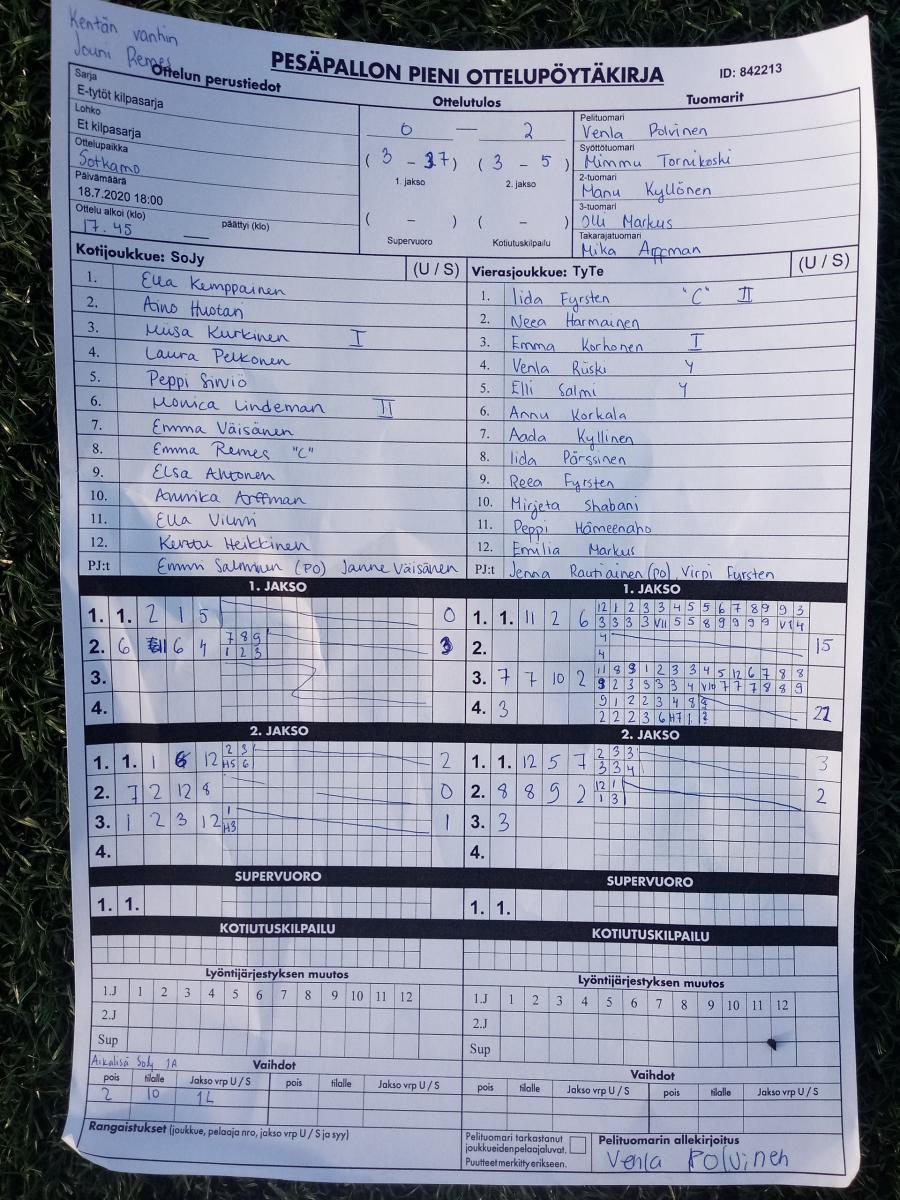 Kentän vanhin
Jouni Remes
PESÄPALLON PIENI OTTELUPÖYTÄKIRJA
ID: 842213
Ottelun perustiedot
Sarja
E-tytöt kilpasarja
Lohko
Et kilpasarja
Ottelupaikka
Sotkamo
Päivämäärä
18.7.2020 18:00
Ottelu alkoi (klo) päättyi (klo)
17.45
Ottelutulos
0 — 2
( 3 - 37) ( 3 - 5 )
1. jakso 2. jakso
( - ) ( - )
Supervuoro Kotiutuskilpailu
Tuomarit
Pelituomari
Venla Polvinen
Syöttötuomari
Mimmu Tornikoski
2-tuomari
Manu Kyllönen
3-tuomari
Olli Markus
Takarajatuomari
Mika Arffman
Kotijoukkue: SoJy (U / S)
1. Ella Kemppainen
2. Aino Huotari
3. Miisa Kurkinen I
4. Laura Pelkonen
5. Peppi Sirviö
6. Monica Lindeman II
7. Emma Väisänen
8. Emma Remes "C"
9. Elsa Ahtonen
10. Annika Arffman
11. Ella Vilmi
12. Kerttu Heikkinen
PJ:t Emmi Salminen (PO) Janne Väisänen
Vierasjoukkue: TyTe (U / S)
1. Iida Fyrsten "C" II
2. Neea Harmainen
3. Emma Korhonen I
4. Venla Riiski Y
5. Elli Salmi Y
6. Annu Korkala
7. Aada Kyllinen
8. Iida Pörssinen
9. Reea Fyrsten
10. Mirjeta Shabani
11. Peppi Hämeenaho
12. Emilia Markus
PJ:t Jenna Rautiainen (PO) Virpi Fyrsten
1. JAKSO
1. 1. 2 1 5 0
2. 6 11 6 4 7 8 9 3
1 2 3
3.
4.
1. JAKSO
1. 1. 11 2 6 12 1 2 3 3 4 5 5 6 7 8 9 9 3
3 3 3 3 VII 5 5 8 9 9 9 9 VI 4
2. 4 15
4
3. 7 7 10 2 11 8 9 1 2 3 3 4 5 12 6 7 8 8
9 2 3 3 3 3 4 V10 7 7 7 8 8 9
4. 3 9 1 2 2 3 4 8 9 22
2 2 2 3 6 H7 1 2
2. JAKSO
1. 1. 1 6 12 2 3 2
H5 6
2. 7 2 12 8 0
3. 1 2 3 12 1 1
H3
4.
2. JAKSO
1. 1. 12 5 7 2 3 3 3
3 3 4
2. 8 8 9 2 12 1 2
1 3
3. 3
4.
SUPERVUORO
1. 1.
SUPERVUORO
1. 1.
KOTIUTUSKILPAILU
KOTIUTUSKILPAILU
Lyöntijärjestyksen muutos
1.J 1 2 3 4 5 6 7 8 9 10 11 12
2.J
Sup
Lyöntijärjestyksen muutos
1.J 1 2 3 4 5 6 7 8 9 10 11 12
2.J
Sup
Aikalisä SoJy 1A
Vaihdot
pois tilalle Jakso vrp U / S pois tilalle Jakso vrp U / S
2 10 1L
Vaihdot
pois tilalle Jakso vrp U / S pois tilalle Jakso vrp U / S
Rangaistukset (joukkue, pelaaja nro, jakso vrp U / S ja syy)
Pelituomari tarkastanut
joukkueidenpelaajaluvat.
Puutteet merkitty erikseen.
Pelituomarin allekirjoitus
Venla Polvinen